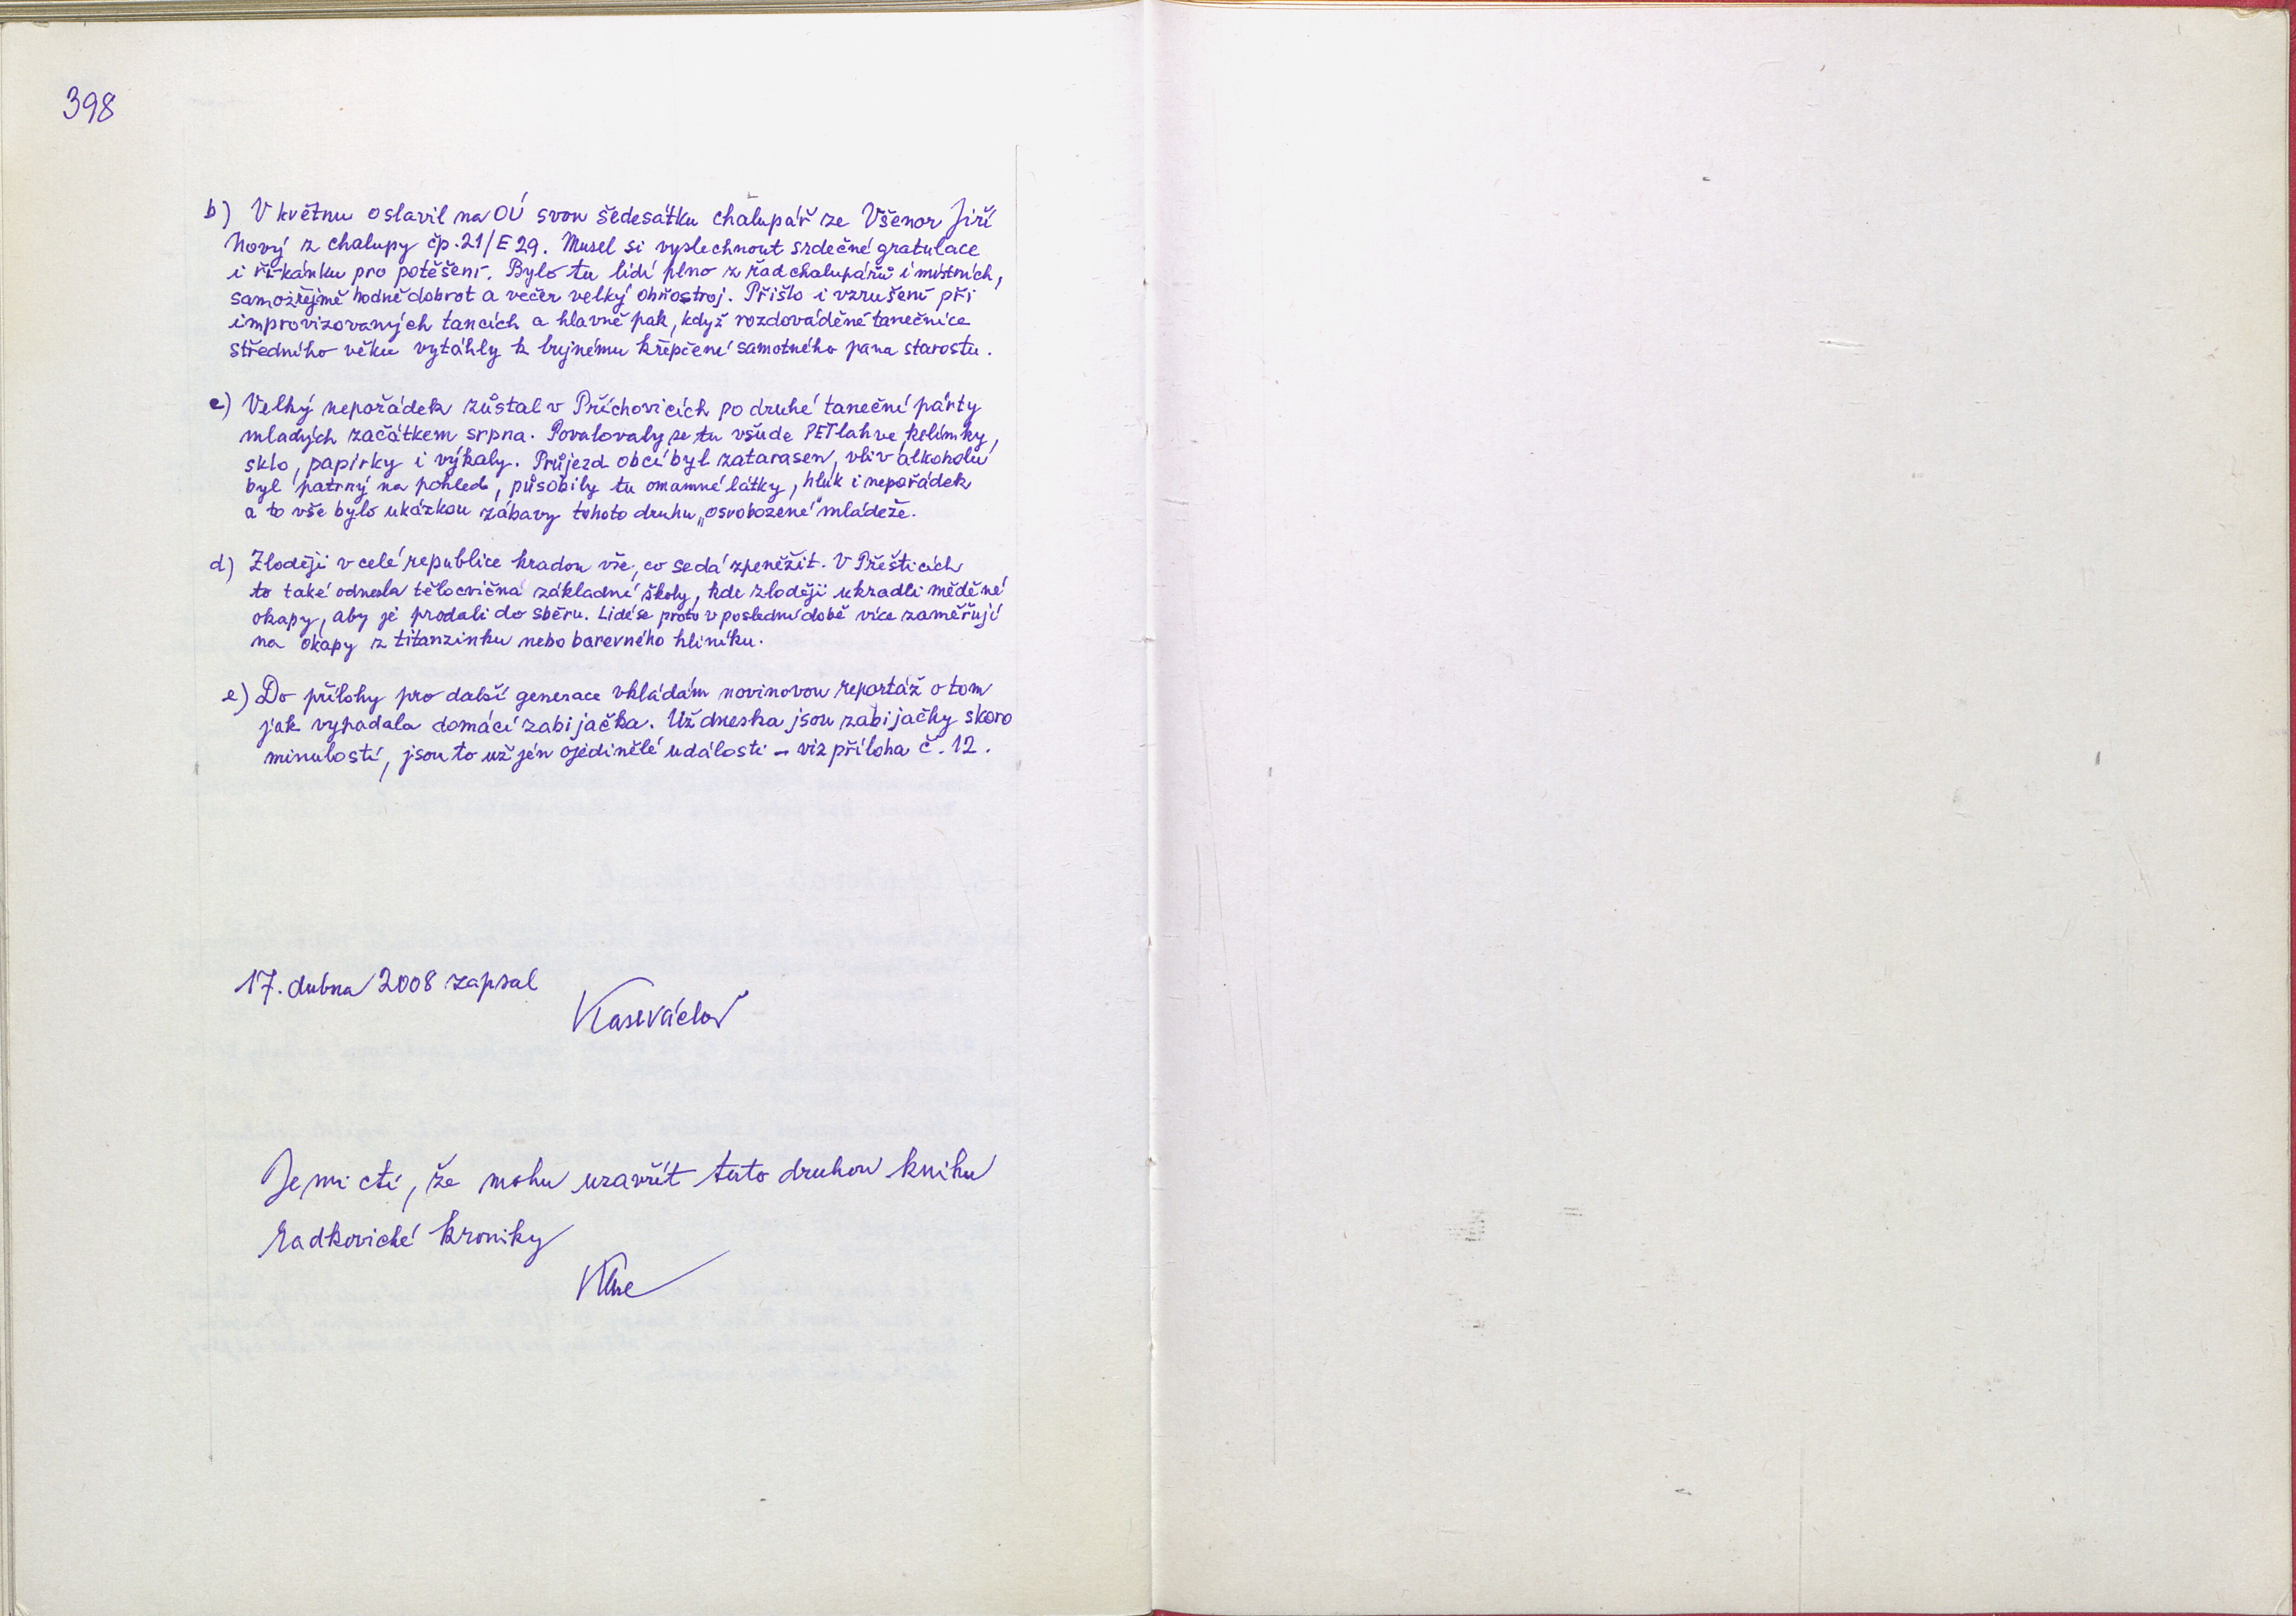 398
b) V květnu oslavil na OÚ svou šedesátku chalupář ze Všenor Jiří
Nový z chalupy čp. 21/E 29. Musel si vyslechnout srdečné gratulace
i říkánku pro potěšení. Bylo tu lidí plno z řad chalupářů i místních,
samozřejmě hodně dobrot a večer velký ohňostroj. Přišlo i vzrušení při
improvizovaných tancích a hlavně pak, když rozdováděné tanečnice
středního věku vytáhly k bujnému křepčení samotného pana starostu.
c) Velký nepořádek zůstal v Příchovicích po druhé taneční párty
mladých začátkem srpna. Povalovaly se tu všude PET lahve, kelímky,
sklo, papírky i výkaly. Průjezd obcí byl zatarasen, vliv alkoholu
byl patrný na pohled, působily tu omamné látky, hluk i nepořádek
a to vše bylo ukázkou zábavy tohoto druhu „osvobozené" mládeže.
d) Zloději v celé republice kradou vše, co se dá zpeněžit. V Přešticích
to také odnesla tělocvična základní školy, kde zloději ukradli měděné
okapy, aby je prodali do sběru. Lidé se proto v poslední době více zaměřují
na okapy z titanzinku nebo barevného hliníku.
e) Do přílohy pro další generace vkládám novinovou reportáž o tom
jak vypadala domácí zabijačka. Už dneska jsou zabijačky skoro
minulostí, jsou to už jen ojedinělé události – viz příloha č. 12.
17. dubna 2008 zapsal
Je mi ctí, že mohu uzavřít tuto druhou knihu
radkovické kroniky